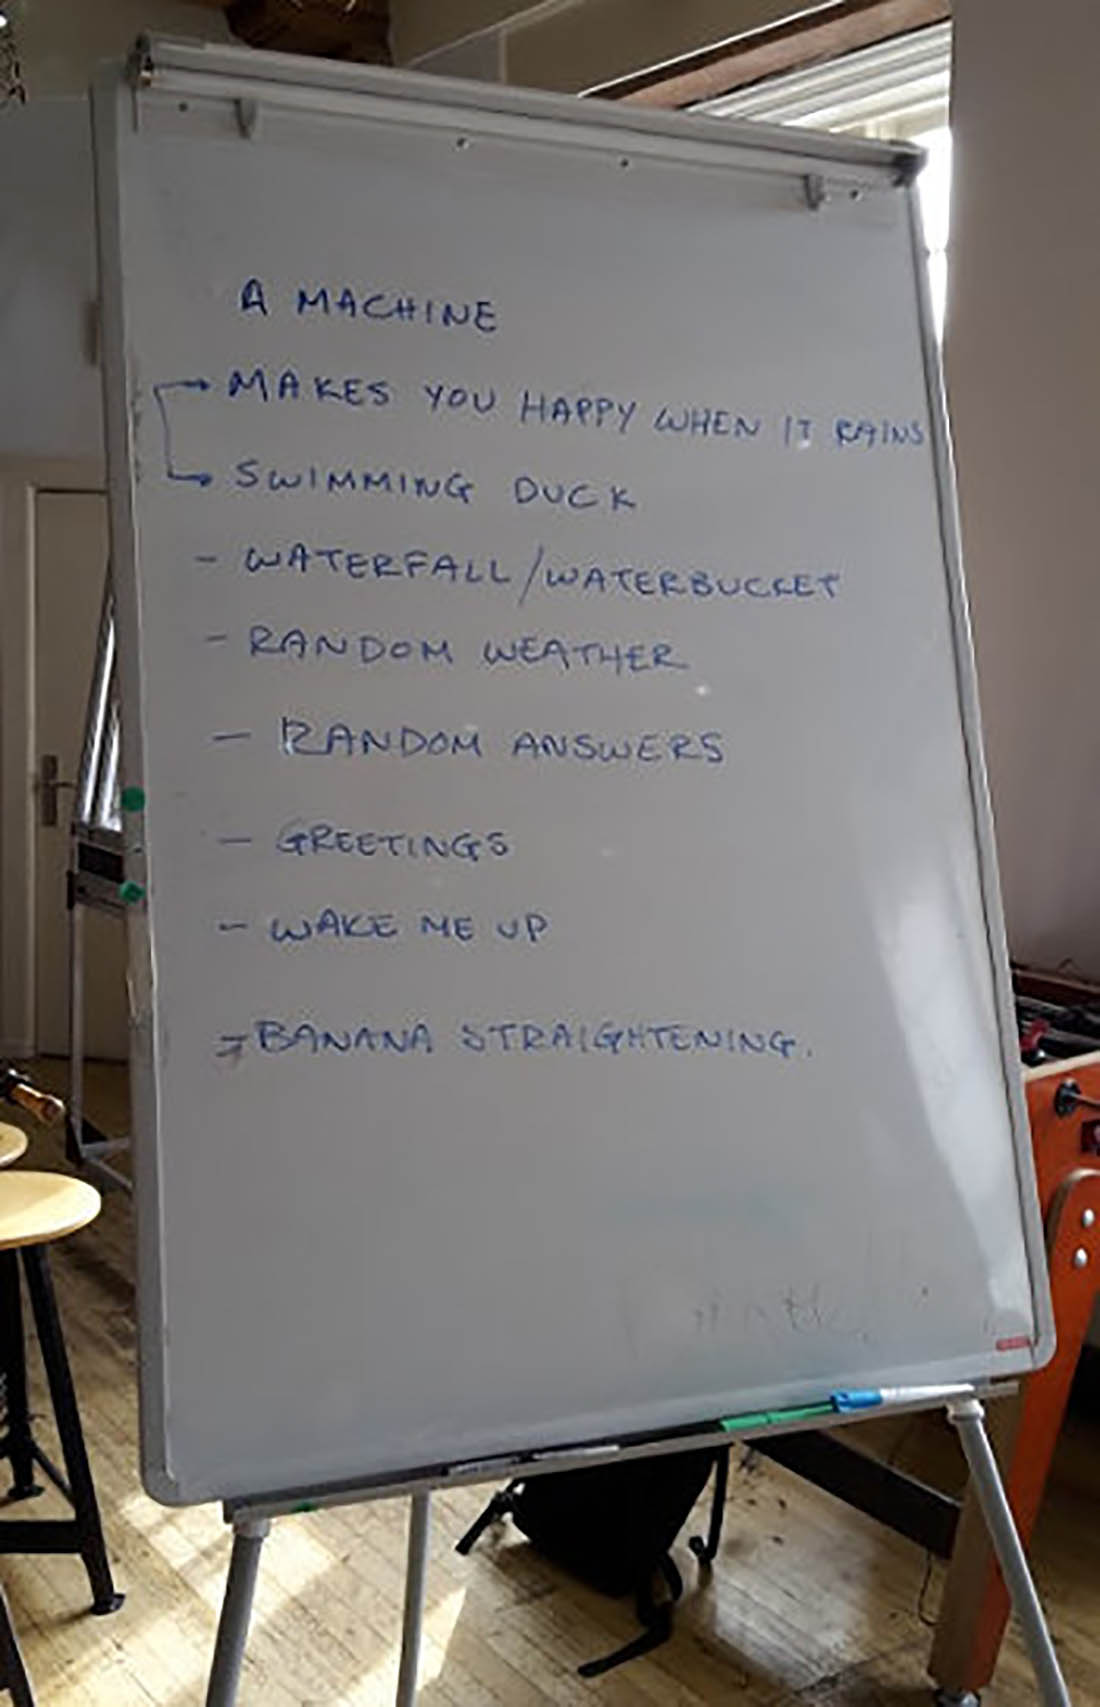 A MACHINE
→ MAKES YOU HAPPY WHEN IT RAINS
→ SWIMMING DUCK
- WATERFALL/WATERBUCKET
- RANDOM WEATHER
- RANDOM ANSWERS
- GREETINGS
- WAKE ME UP
- BANANA STRAIGHTENING.